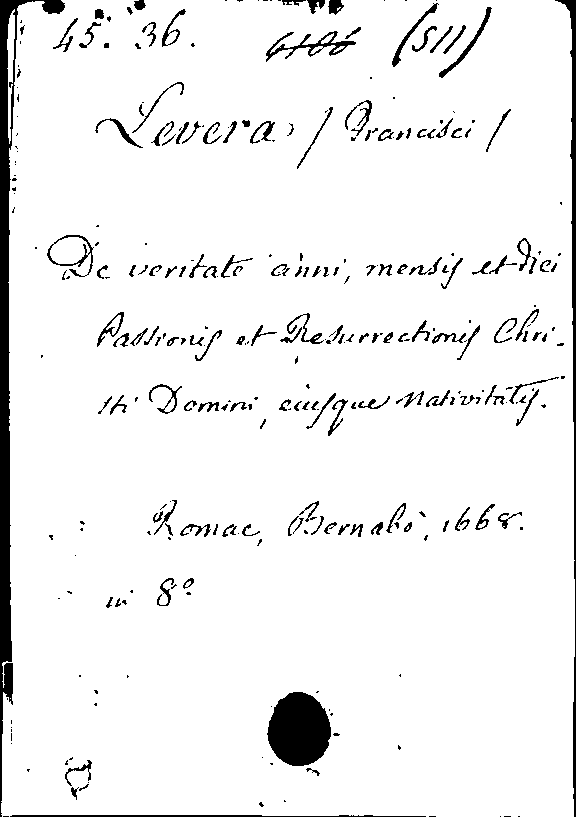 45. 36. 6106 (SII)
Levera / Francisci /
De veritate anni, mensis et diei
Passionis et Resurrectionis Chri-
sti Domini, eiusque Nativitatis.
Romae, Bernabò, 1668.
in 8º